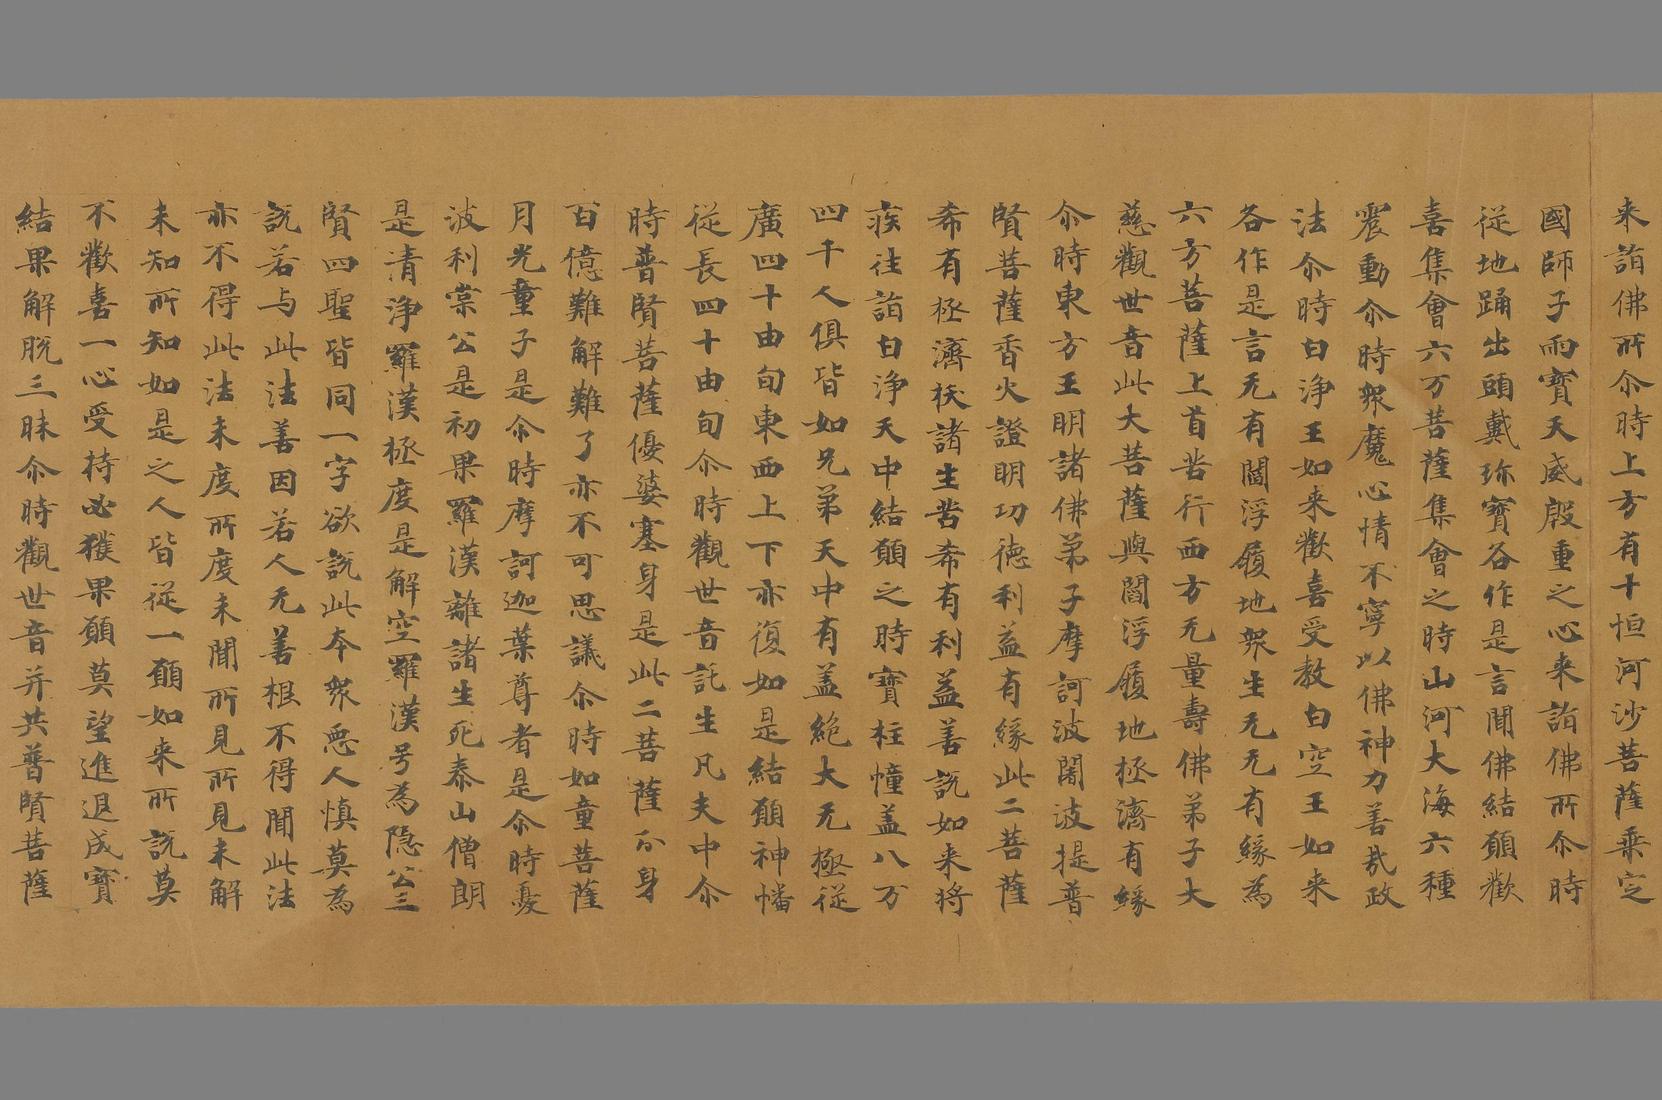 来詣佛所尒時上方有十恒河沙菩薩乗定
國師子雨寳天威慇重之心来詣佛所尒時
従地踊出頭戴珎寳各作是言聞佛結願歡
喜集會六万菩薩集會之時山河大海六種
震動尒時衆魔心情不寧以佛神力善哉政
法尒時白浄王如来歡喜受教白空王如来
各作是言无有閻浮履地衆生无无有縁為
六方菩薩上首苦行西方无量壽佛弟子大
慈觀世音此大菩薩與閻浮履地拯濟有縁
尒時東方王明諸佛弟子摩訶波闍波提普
賢菩薩香火證明功徳利益有縁此二菩薩
希有拯濟抶諸生苦希有利益善説如来将
疾往詣白浄天中結願之時寳柱幢盖八万
四千人俱皆如兄弟天中有盖絶大无極従
廣四十由旬東西上下亦復如是結願神幡
従長四十由旬尒時觀世音託生凡夫中尒
時普賢菩薩優婆塞身是此二菩薩㕯身
百億難解難了亦不可思議尒時如童菩薩
月光童子是尒時摩訶迦葉尊者是尒時憂
波利棠公是初果羅漢離諸生死泰山僧朗
是清浄羅漢拯度是解空羅漢号為隠公三
賢四聖皆同一字欲説此本衆悪人慎莫為
説若与此法善因若人无善根不得聞此法
亦不得此法未度所度未聞所見所見未解
未知所知如是之人皆従一願如来所説莫
不歡喜一心受持必獲果願莫望進退成寳
結果解脱三昧尒時觀世音并共普賢菩薩